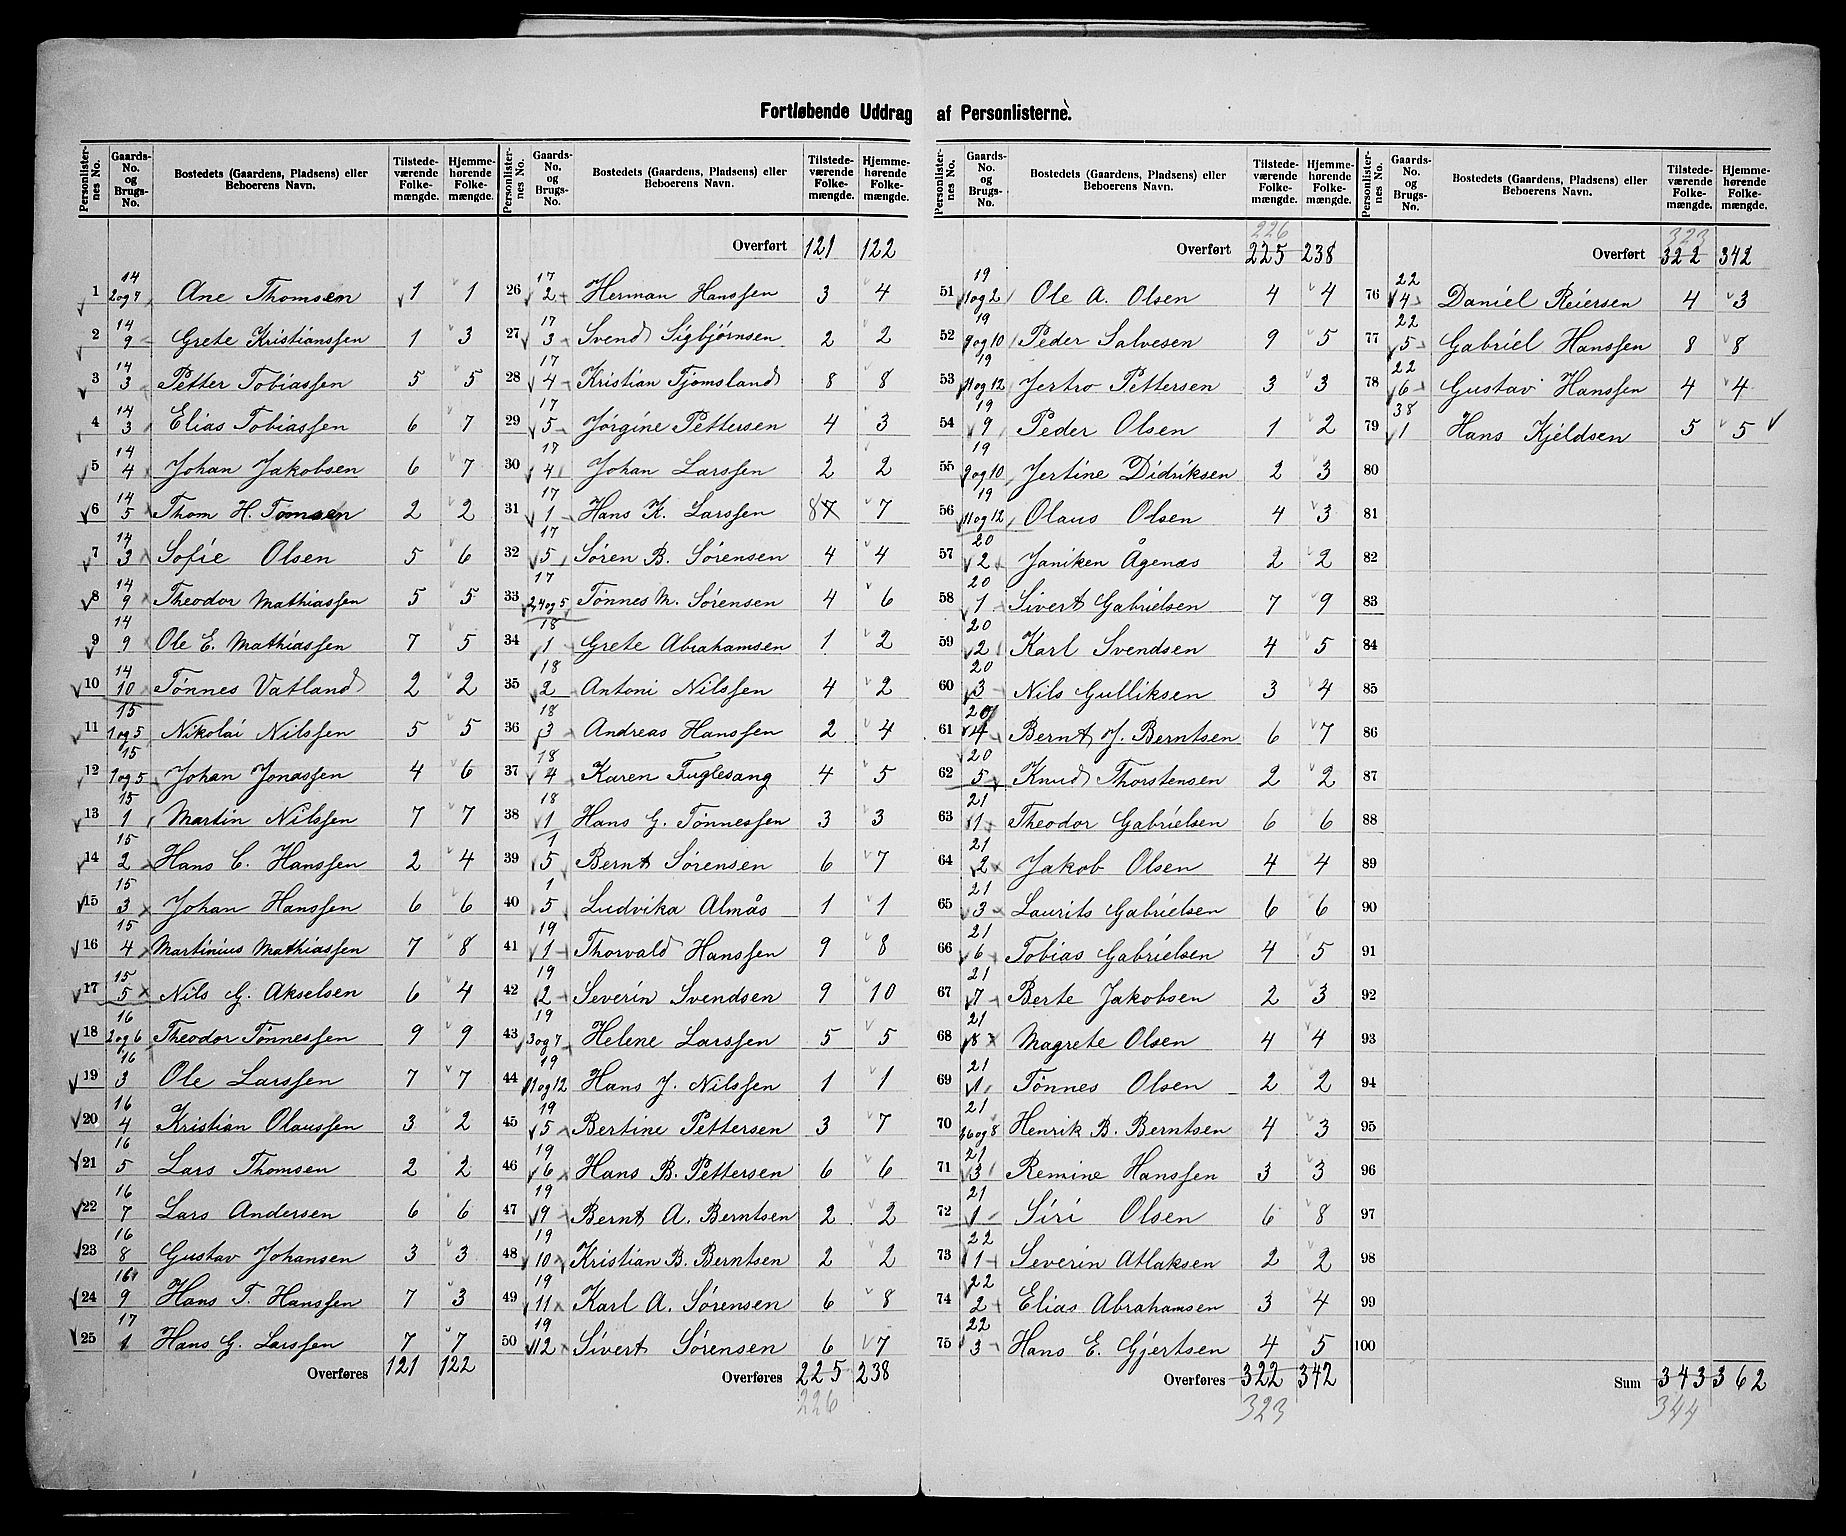 Fortløbende Uddrag af Personlisterne.
Personlisternes No. Gaards-No. og Brugs-No. Bostedets (Gaardens, Pladsens) eller Beboerens Navn. Tilstedeværende Folkemængde. Hjemmehørende Folkemængde.
1 14 2og7 Ane Thomsen 1 1
2 14 9 Grete Kristianssen 1 3
3 14 3 Petter Tobiassen 5 5
4 14 3 Elias Tobiassen 6 7
5 14 4 Johan Jakobsen 6 7
6 14 5 Thom H. Tomsen 2 2
7 14 3 Sofie Olsen 5 6
8 14 9 Theodor Mathiassen 5 5
9 14 9 Ole E. Mathiassen 7 5
10 14 10 Tønnes Vatland 2 2
11 15 1og5 Nikolai Nilssen 5 5
12 15 1og5 Johan Jonassen 4 6
13 15 1 Martin Nilssen 7 7
14 15 2 Hans C. Hanssen 2 4
15 15 3 Johan Hanssen 6 6
16 15 4 Martinius Mathiassen 7 8
17 15 5 Nils G. Akselsen 6 4
18 16 2og6 Theodor Tønnessen 9 9
19 16 3 Ole Larssen 7 7
20 16 4 Kristian Olaussen 3 2
21 16 5 Lars Thomsen 2 2
22 16 7 Lars Andersen 6 6
23 16 8 Gustav Johansen 3 3
24 16 9 Hans T. Hanssen 7 3
25 17 1 Hans G. Larssen 7 7
Overføres 121 122
Personlisternes No. Gaards-No. og Brugs-No. Bostedets (Gaardens, Pladsens) eller Beboerens Navn. Tilstedeværende Folkemængde. Hjemmehørende Folkemængde.
Overført 121 122
26 17 2 Herman Hanssen 3 4
27 17 3 Svend Sigbjørnsen 2 2
28 17 4 Kristian Tjomsland 8 8
29 17 5 Jørgine Pettersen 4 3
30 17 4 Johan Larssen 2 2
31 17 1 Hans K. Larssen 8 7 7
32 17 5 Søren B. Sørensen 4 4
33 17 2,4og5 Tønnes M. Sørensen 4 6
34 18 1 Grete Abrahamsen 1 2
35 18 2 Antoni Nilssen 4 2
36 18 3 Andreas Hanssen 2 4
37 18 4 Karen Fuglesang 4 5
38 18 1 Hans G. Tønnessen 3 3
39 1 5 Bernt Sørensen 6 7
40 1 5 Ludvika Almås 1 1
41 19 1 Thorvald Hanssen 9 8
42 19 2 Severin Svendsen 9 10
43 19 3og7 Helene Larssen 5 5
44 19 11og12 Hans J. Nilssen 1 1
45 19 5 Bertine Pettersen 3 7
46 19 6 Hans B. Pettersen 6 6
47 19 9 Bernt A. Berntsen 2 2
48 19 10 Kristian B. Berntsen 2 2
49 19 11 Karl A. Sørensen 6 8
50 19 12 Sivert Sørensen 6 7
Overføres 225 238
226
Personlisternes No. Gaards-No. og Brugs-No. Bostedets (Gaardens, Pladsens) eller Beboerens Navn. Tilstedeværende Folkemængde. Hjemmehørende Folkemængde.
226
Overført 225 238
51 19 1og2 Ole A. Olsen 4 4
52 19 9og10 Peder Salvesen 9 5
53 19 11og12 Jertro Pettersen 3 3
54 19 9 Peder Olsen 1 2
55 19 9og10 Jertine Didriksen 2 3
56 19 11og12 Olaus Olsen 4 3
57 20 2 Janiken Ågenæs 2 2
58 20 1 Sivert Gabrielsen 7 9
59 20 2 Karl Svendsen 4 5
60 20 3 Nils Gulliksen 3 4
61 20 4 Bernt J. Berntsen 6 7
62 20 5 Knud Thorstensen 2 2
63 21 1 Theodor Gabrielsen 6 6
64 21 2 Jakob Olsen 4 4
65 21 3 Laurits Gabrielsen 6 6
66 21 6 Tobias Gabrielsen 4 5
67 21 7 Berte Jakobsen 2 3
68 21 8 Magrete Olsen 4 4
69 21 1 Tønnes Olsen 2 2
70 21 6og8 Henrik B. Berntsen 4 3
71 21 3 Remine Hanssen 3 3
72 21 1 Siri Olsen 6 8
73 22 1 Severin Atlaksen 2 2
74 22 2 Elias Abrahamsen 3 4
75 22 3 Hans E. Gjertsen 4 5
Overføres 322 342
323
Personlisternes No. Gaards-No. og Brugs-No. Bostedets (Gaardens, Pladsens) eller Beboerens Navn. Tilstedeværende Folkemængde. Hjemmehørende Folkemængde.
323
Overført 322 342
76 22 4 Daniel Reiersen 4 3
77 22 5 Gabriel Hanssen 8 8
78 22 6 Gustav Hanssen 4 4
79 38 1 Hans Kjeldsen 5 5
80
81
82
83
84
85
86
87
88
89
90
91
92
93
94
95
96
97
98
99
100
Sum 343 362
344